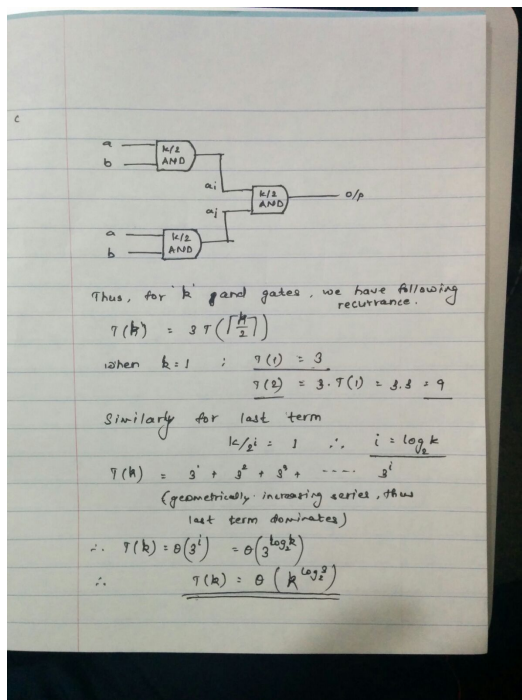 c
a
b
k/2
AND
ai
aj
k/2
AND
O/P
a
b
k/2
AND
Thus, for 'k' pand gates, we have following
recurrance.
T(k) = 3T(⌈k/2⌉)
when k=1 : T(1) = 3
T(2) = 3·T(1) = 3.3 = 9
Similarly for last term
k/2^i = 1 ∴ i = log₂k
T(k) = 3^1 + 3^2 + 3^3 + ----- 3^i
(geometrically increasing series, thus
last term dominates)
∴ T(k) = θ(3^i) = θ(3^log₂k)
∴ T(k) = θ(k^log₂3)